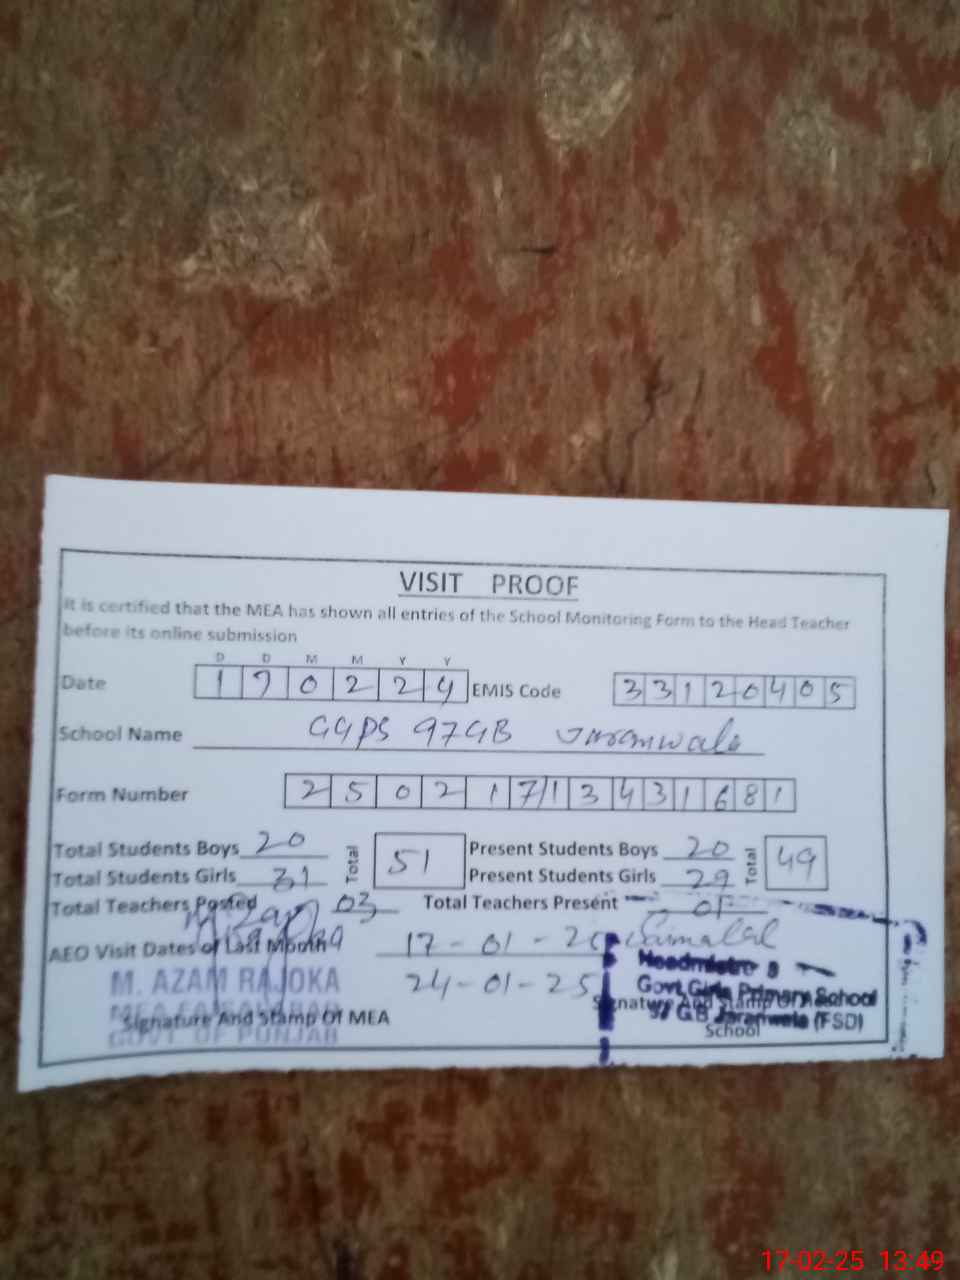 VISIT PROOF
It is certified that the MEA has shown all entries of the School Monitoring Form to the Head Teacher
before its online submission
D D M M Y Y
Date 1 7 0 2 2 4 EMIS Code 3 3 1 2 0 4 0 5
School Name GGPS 97GB Jaranwala
Form Number 2 5 0 2 1 7/1 3 4 3 1 6 8 1
Total Students Boys 20 Total 51 Present Students Boys 20 Total 49
Total Students Girls 31 Present Students Girls 29
Total Teachers Posted 03 Total Teachers Present 01
AEO Visit Dates of Last Month 17-01-25
24-01-25
M. AZAM RAJOKA
MEA FAISALABAD
GOVT. OF PUNJAB
Signature And Stamp Of MEA
Headmistress
Govt. Girls Primary School
97 GB Jaranwala (FSD)
Signature And Stamp Of
School
17-02-25 13:49